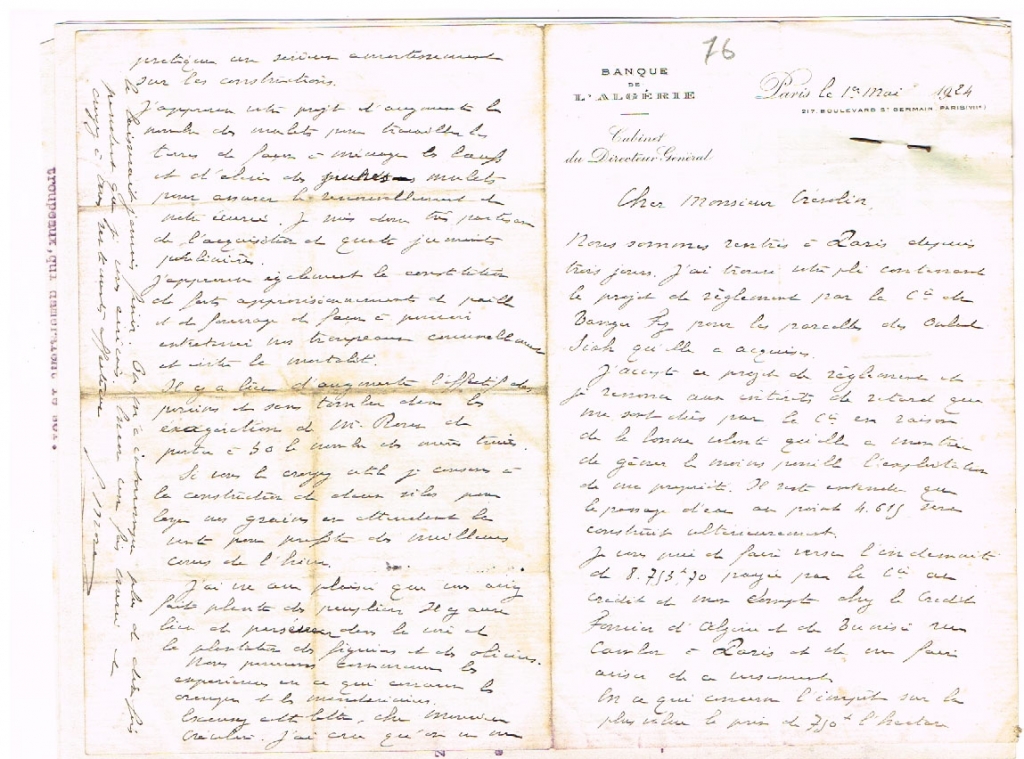 76
BANQUE
DE
L'ALGÉRIE
Cabinet
du Directeur Général
Paris le 1er Mai 1924
217. BOULEVARD St GERMAIN. PARIS (VIIe)
Cher Monsieur
Nous sommes rentrés à Paris depuis
trois jours. J'ai trouvé votre pli contenant
le projet de règlement par la Cie de
pour les parcelles des Ouled
qu'elle a acquises.
J'accepte ce projet de règlement et
je renonce aux intérêts de retard que
me sont dûs par la Cie en raison
de la bonne volonté qu'elle a montrée
de gêner le moins possible l'exploitation
de ma propriété. Il reste entendu que
le passage d'eau au point 4.615 sera
construit ultérieurement.
Je vous prie de faire verser l'indemnité
de 8.753f,70 payée par la Cie au
crédit de mon compte chez le Crédit
Foncier d'Algérie et de Tunisie rue
Cambon à Paris et de me faire
aviser de ce versement.
En ce qui concerne l'impôt sur la
plus value le prix de 750f l'hectare
pratiquer un sérieux amortissement
sur les constructions.
J'approuve votre projet d'augmenter le
nombre des mulets pour travailler les
terres de façon à ménager les bœufs
et d'avoir des mulets
pour assurer le renouvellement de
notre écurie. Je suis donc très partisan
de l'acquisition de quatre juments
J'approuve également la constitution
de forts approvisionnements de paille
et de fourrage de façon à pouvoir
entretenir nos troupeaux convenablement
et éviter la mortalité.
Il y a lieu d'augmenter l'effectif des
porcins et sans tomber dans les
exagérations de Mr de
porter à 50 le nombre des mères truies.
Si vous le croyez utile je consens à
la construction de deux silos pour
loger nos grains en attendant la
vente pour profiter des meilleurs
cours de l'hiver.
J'ai vu avec plaisir que vous aviez
fait planter des peupliers. Il y aura
lieu de persévérer dans la voie et
la plantation des figuiers et des oliviers.
Nous pourrons commencer les
expériences en ce qui concerne les
orangers et les mandariniers.
Excusez cette lettre, cher Monsieur
J'ai cru qu'on ne me
la laisserait jamais finir. On m'a dérangé plus de dix fois
pendant que je vous écrivais. Merci encore une fois et
croyez à mes sentiments affectueux